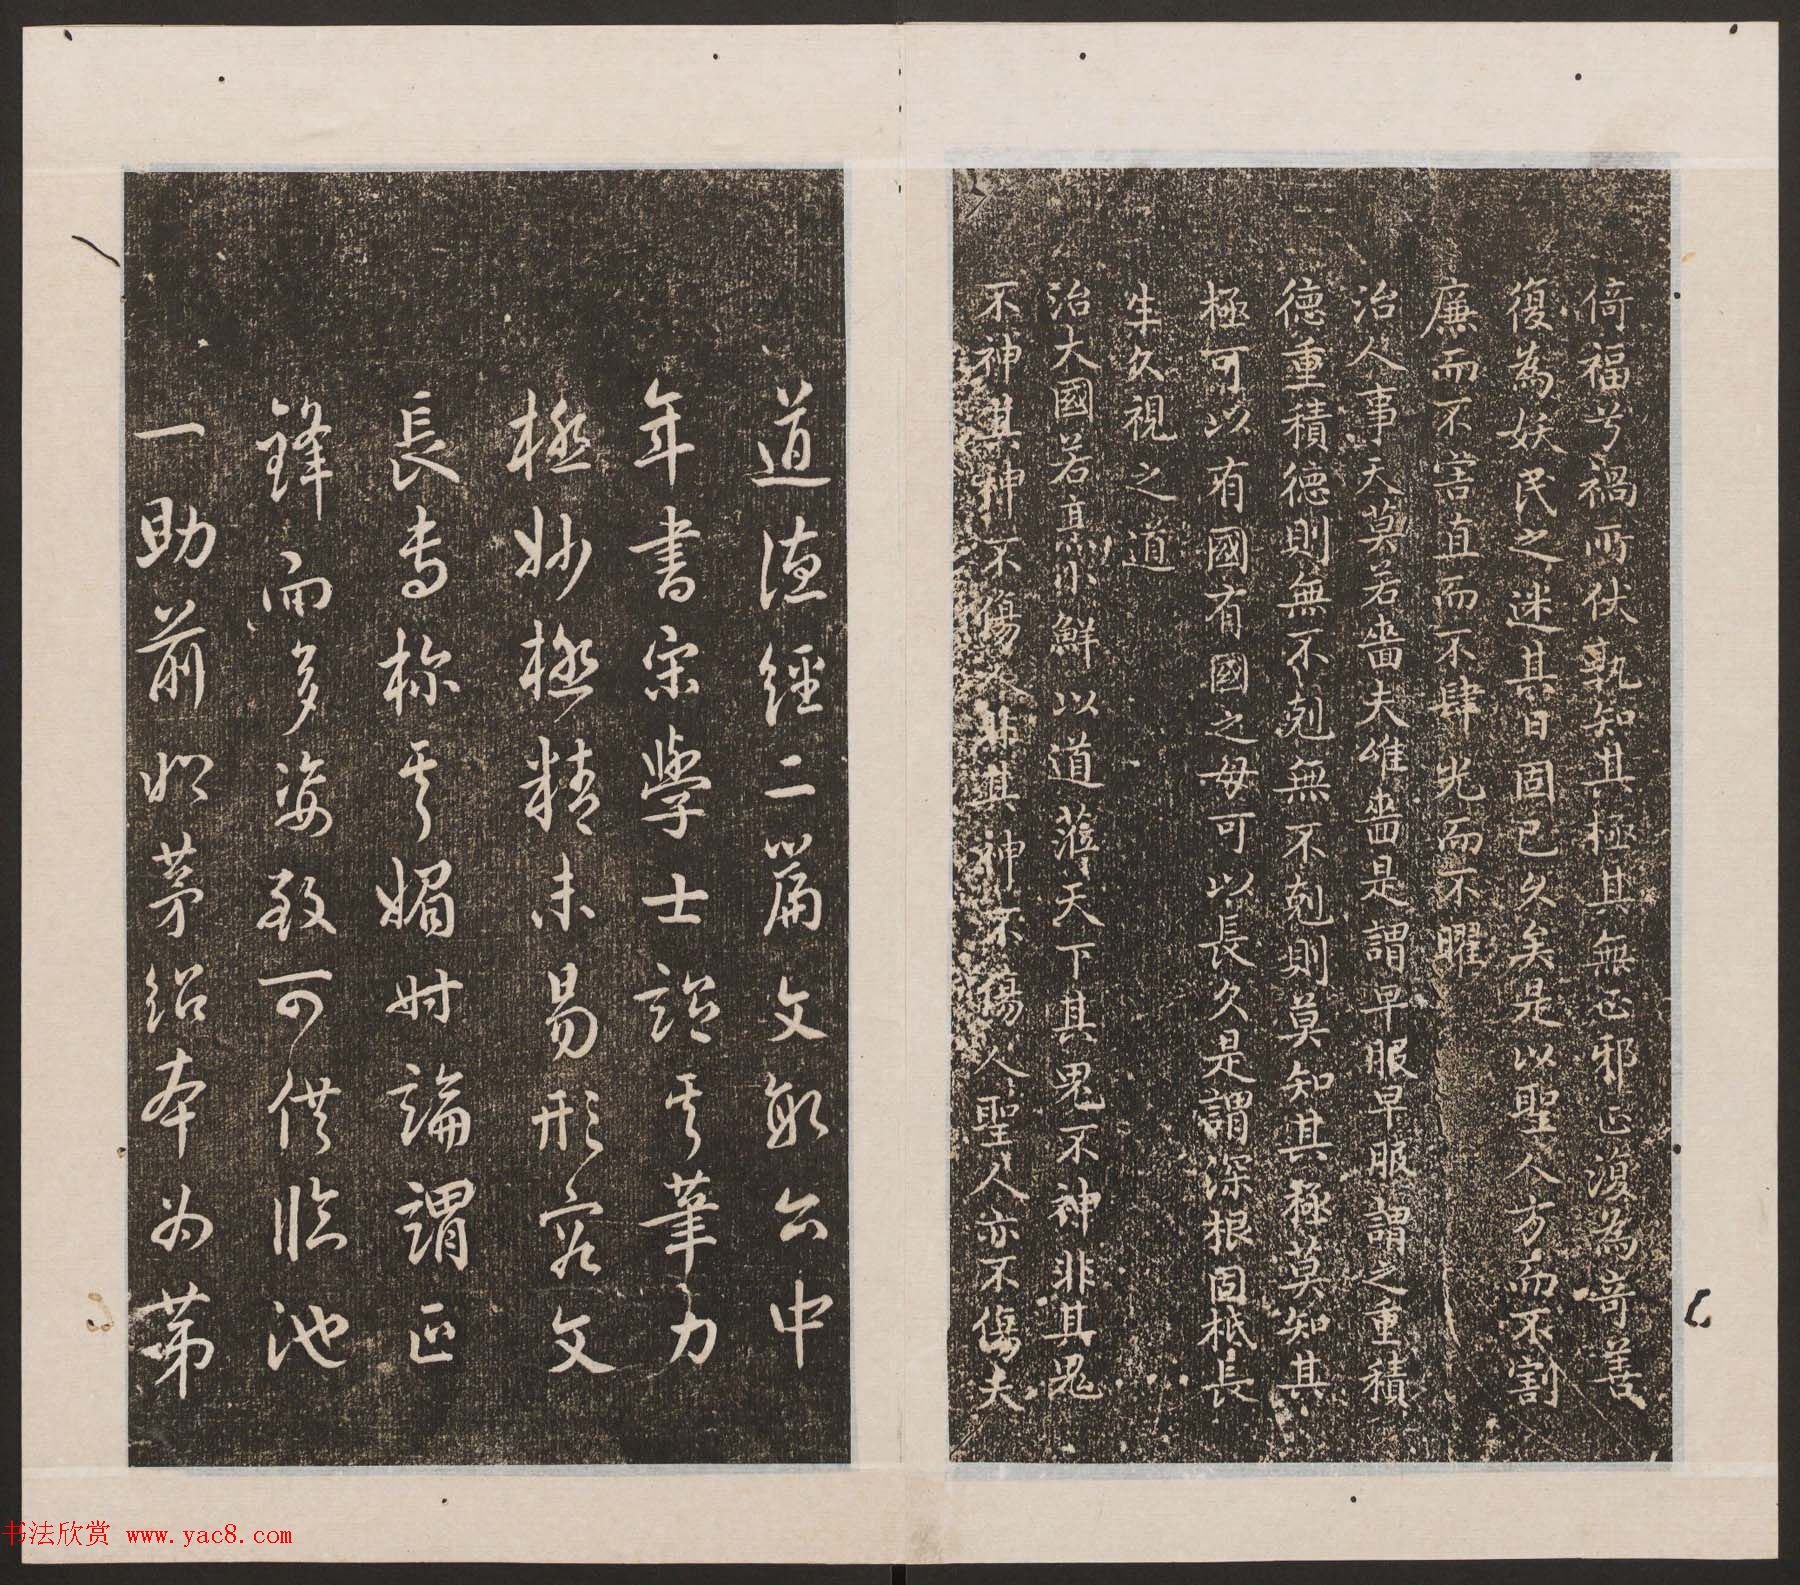 倚福兮禍所伏孰知其極其無正邪正復為奇善
復為妖民之迷其日固已久矣是以聖人方而不割
廉而不害直而不肆光而不曜
治人事天莫若嗇夫唯嗇是謂早服早服謂之重積
德重積德則無不剋無不剋則莫知其極莫知其
極可以有國有國之母可以長久是謂深根固柢長
生久視之道
治大國若烹小鮮以道蒞天下其鬼不神非其鬼
不神其神不傷人非其神不傷人聖人亦不傷夫
道德經二篇文敏公中
年書宋學士謂其筆力
極妙極精未易形容文
長專稱其媚時論謂正
鋒而多姿致可供臨池
一助前朝茅紹本為第
書法欣赏 www.yac8.com